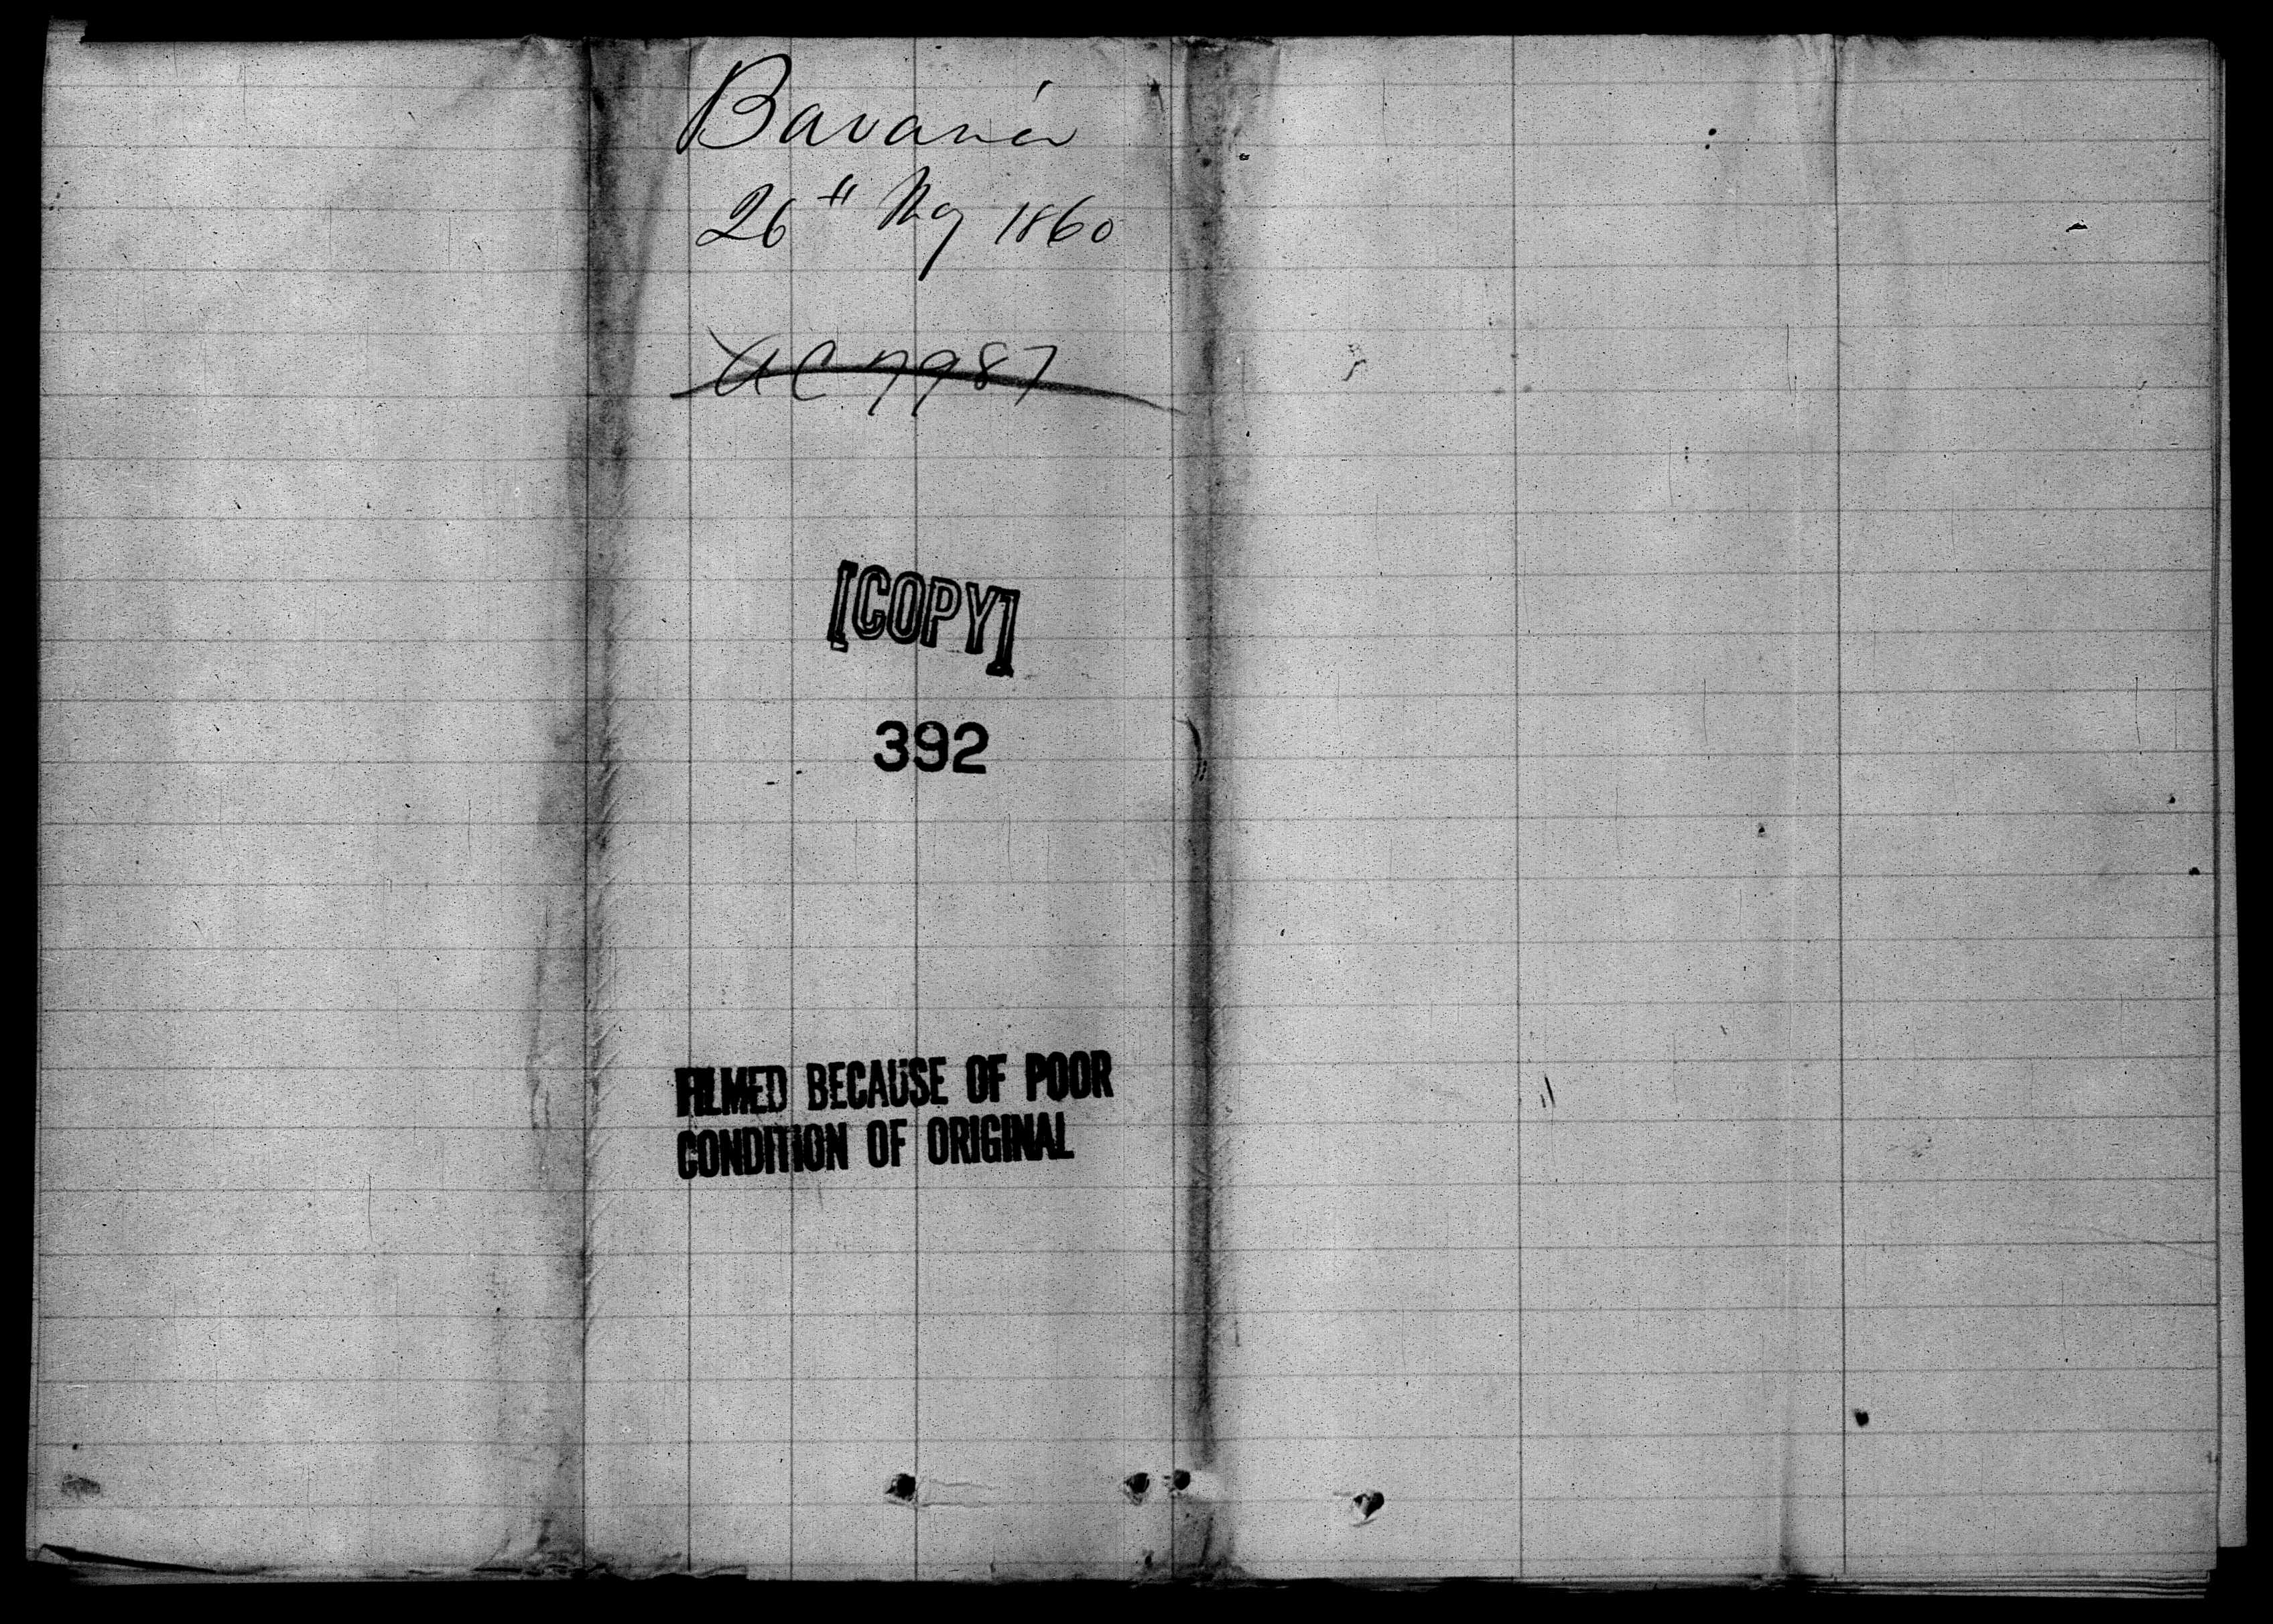 Bavaria
26th May 1860
[COPY]
392
FILMED BECAUSE OF POOR
CONDITION OF ORIGINAL